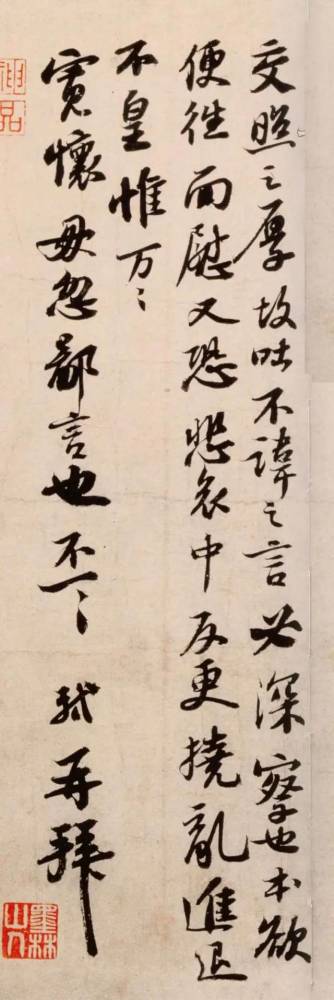 交照之厚故吐不諱之言必深察也本欲
便往面慰又恐悲哀中反更撓亂進退
不皇惟万〻
寬懷毋忽鄙言也不一〻 軾再拜
墨林山人
神品